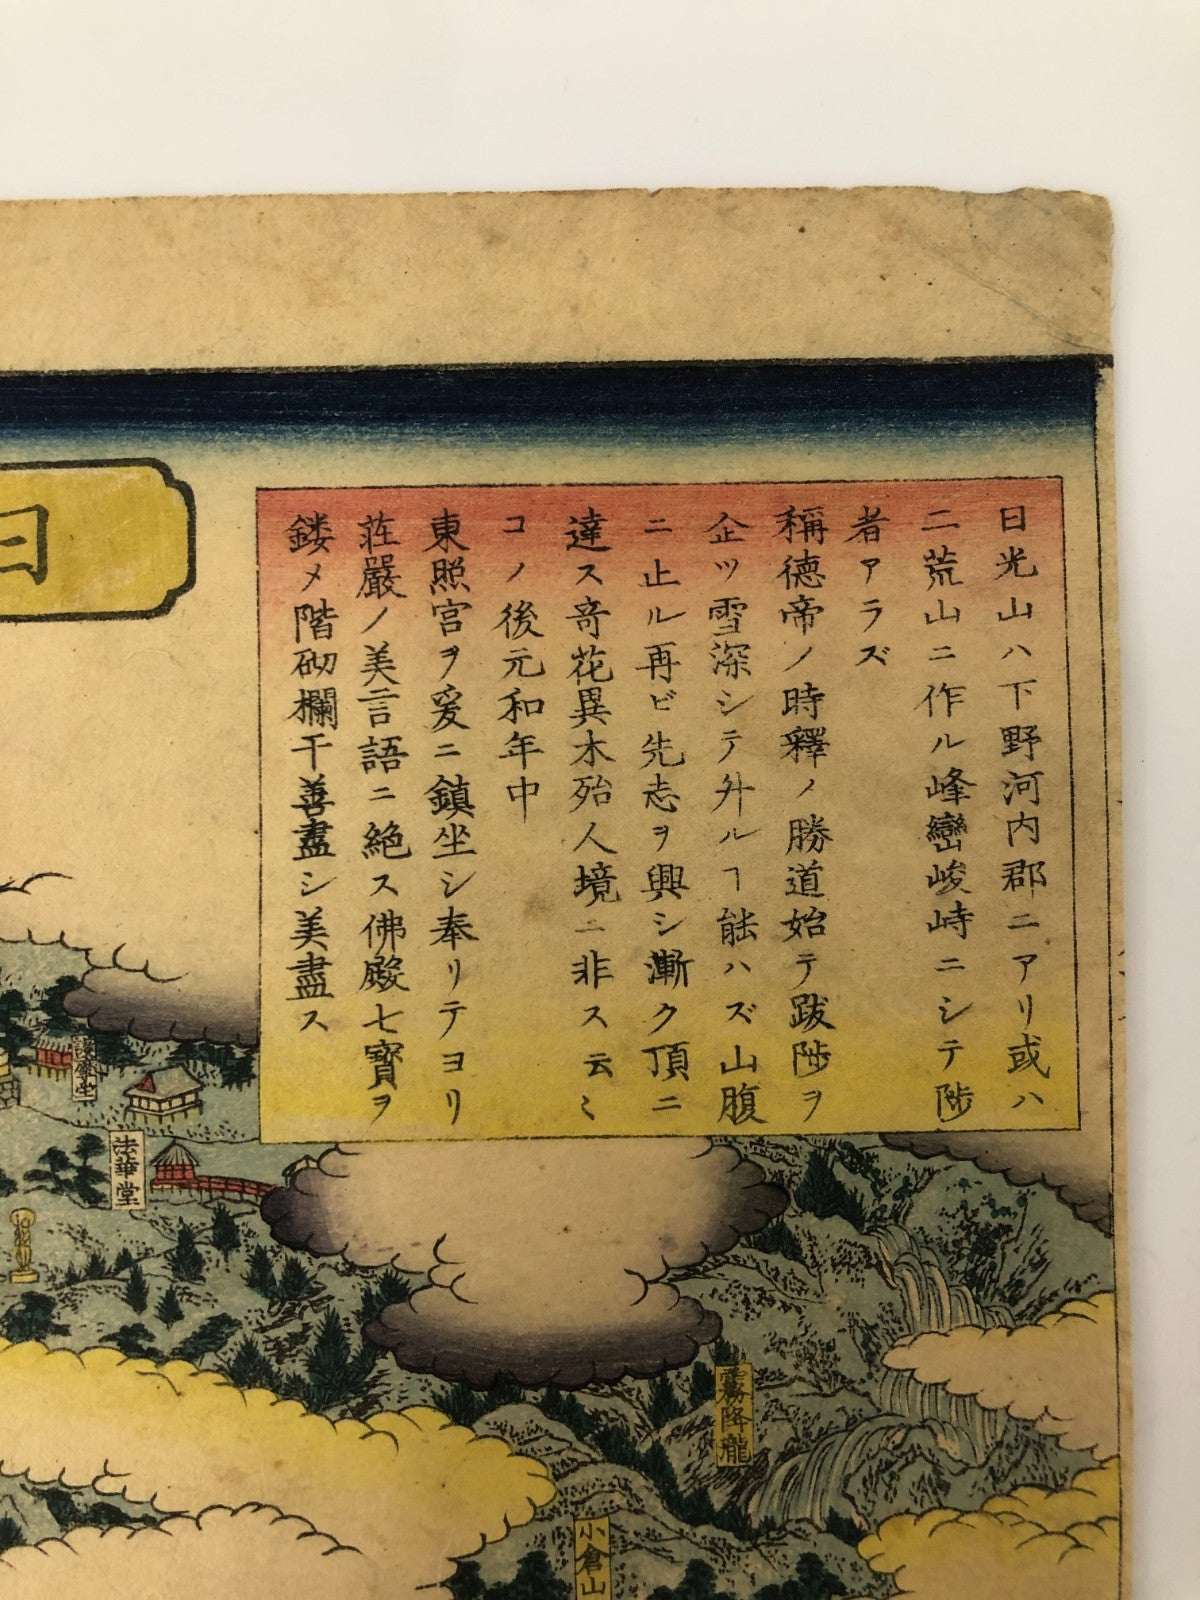 日光山ハ下野河内郡ニアリ或ハ
二荒山ニ作ル峰巒峻峙ニシテ陟
者アラズ
稱德帝ノ時釋ノ勝道始テ跋陟ヲ
企ツ雪深シテ升ルヿ能ハズ山腹
ニ止ル再ビ先志ヲ興シ漸ク頂ニ
達ス竒花異木殆人境ニ非ス云〻
コノ後元和年中
東照宮ヲ爰ニ鎮坐シ奉リテヨリ
莊嚴ノ美言語ニ絶ス佛殿七寳ヲ
鏤メ階砌欄干善盡シ美盡ス
日
護摩堂
法華堂
霧降瀧
小倉山